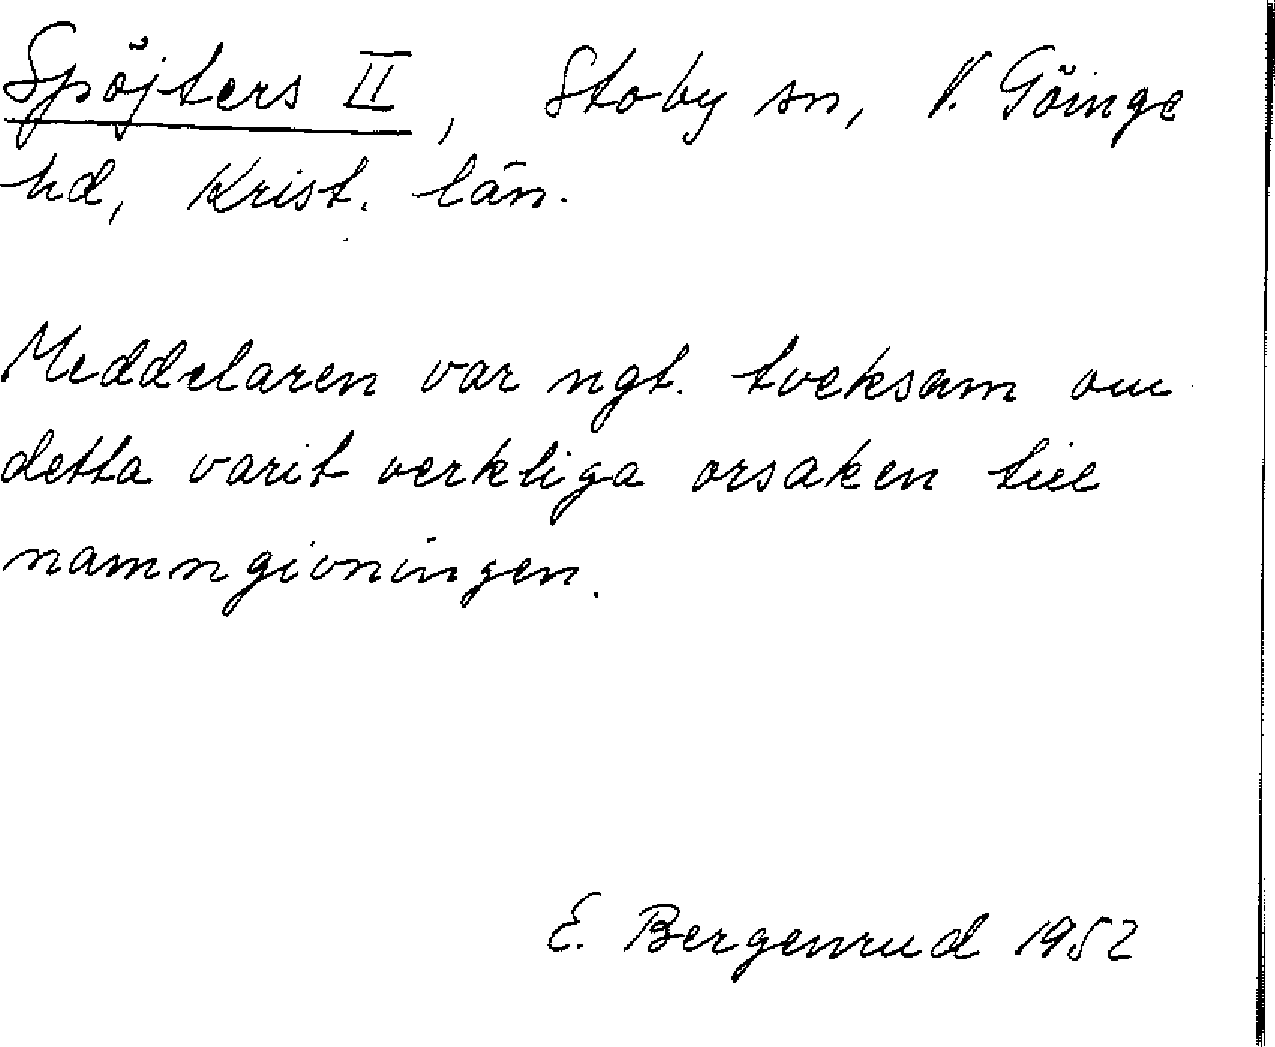 Spöjters II, Stoby sn, V. Göinge
hd, Krist. län.
Meddelaren var ngt. tveksam om
detta varit verkliga orsaken till
namngivningen.
E. Bergenrud 1952